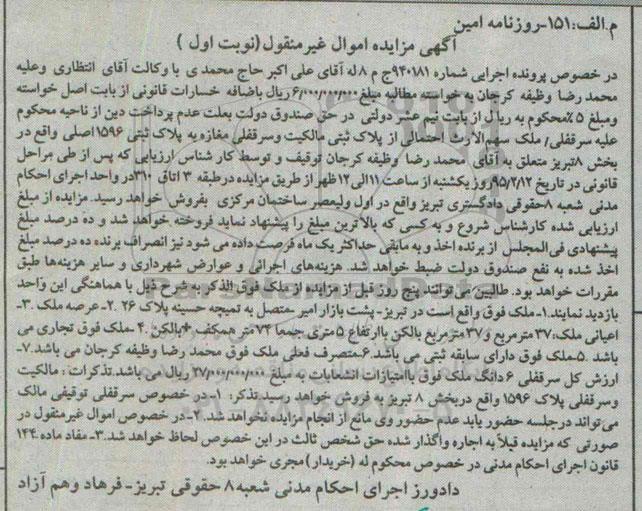 م.الف:۱۵۱-روزنامه امین
آگهی مزایده اموال غیرمنقول (نوبت اول )
در خصوص پرونده اجرایی شماره ۹۴۰۱۸۱ج م ۸ له آقای علی اکبر حاج محمدی با وکالت آقای انتظاری وعلیه
محمد رضا وظیفه کرجان به خواسته مطالبه مبلغ ۶/۰۰۰/۰۰۰/۰۰۰ ریال باضافه خسارات قانونی از بابت اصل خواسته
ومبلغ ۵٪محکوم به ریال از بابت نیم عشر دولتی در حق صندوق دولت بعلت عدم پرداخت دین از ناحیه محکوم
علیه سرقفلی/ ملک سهم الارث احتمالی از پلاک ثبتی مالکیت وسرقفلی مغازه به پلاک ثبتی ۱۵۹۶اصلی واقع در
بخش ۸تبریز متعلق به آقای محمد رضا وظیفه کرجان توقیف و توسط کارشناس ارزیابی که پس از طی مراحل
قانونی در تاریخ ۹۵/۲/۱۲روز یکشنبه از ساعت ۱۱الی۱۲ظهر از طریق مزایده درطبقه ۳ اتاق ۳۱۰در واحد اجرای احکام
مدنی شعبه ۸حقوقی دادگستری تبریز واقع در اول ولیعصر ساختمان مرکزی بفروش خواهد رسید.مزایده از مبلغ
ارزیابی شده کارشناس شروع و به کسی که بالاترین مبلغ را پیشنهاد نماید فروخته خواهد شد و ده درصد مبلغ
پیشنهادی فی المجلس از برنده اخذ و به مابقی حداکثر یک ماه فرصت داده می شود نیز انصراف برنده ده درصد مبلغ
اخذ شده به نفع صندوق دولت ضبط خواهد شد. هزینه‌های اجرائی و عوارض شهرداری و سایر هزینه‌ها طبق
مقررات خواهد بود. طالبین می توانند پنج روز قبل از مزایده از ملک فوق الذکر به شرح ذیل با هماهنگی این واحد
بازدید نمایند.۱-ملک فوق واقع است در تبریز- پشت بازار امیر -متصل به نمیچه حسینه پلاک ۲۶ .۲-عرصه ملک .۳-
اعیانی ملک:۳۷مترمربع و۳۷مترمربع بالکن باارتفاع ۵متری.جمعا ۷۴متر همکف+بالکن.۴-ملک فوق تجاری می
باشد .۵-ملک فوق دارای سابقه ثبتی می باشد.۶-متصرف فعلی ملک فوق محمد رضا وظیفه کرجان می باشد.۷-
ارزش کل سرقفلی ۶دانگ ملک فوق باامتیازات انشعابات به مبلغ ۲۷/۰۰۰/۰۰۰/۰۰۰ ریال می باشد.تذکرات : مالکیت
وسرقفلی پلاک ۱۵۹۶ واقع دربخش ۸ تبریز به فروش خواهد رسید.تذکر: ۱-در خصوص سرقفلی توقیفی مالک
می تواند درجلسه حضور یابد عدم حضور وی مانع از انجام مزایده نخواهد شد.۲-در خصوص اموال غیرمنقول در
صورتی که مزایده قبلاً به اجاره واگذار شده حق شخص ثالث در این خصوص لحاظ خواهد شد.۳-مفاد ماده۱۴۴
قانون اجرای احکام مدنی در خصوص محکوم له (خریدار) مجری خواهد بود.
دادورز اجرای احکام مدنی شعبه۸ حقوقی تبریز-فرهاد وهم آزاد